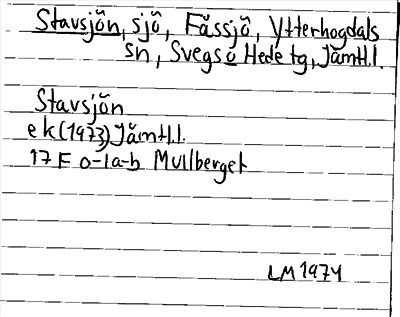 Stavsjön, sjö, Fåssjö, Ytterhogdals
sn, Svegs o Hede tg, Jämtl.l.
Stavsjön
ek (1973) Jämtl.l.
17 F 0-1a-b Mullberget
LM 1974